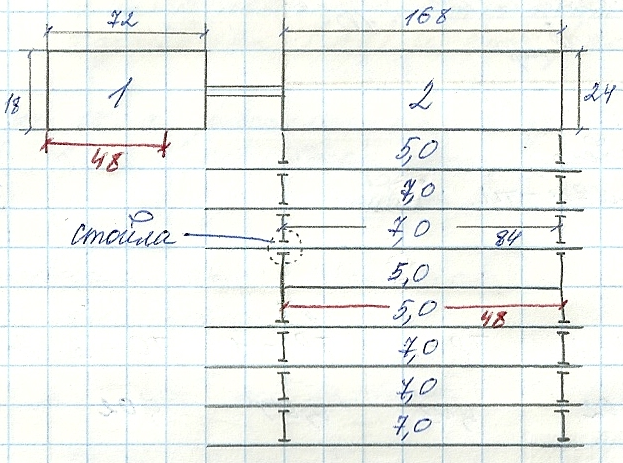 72 168
18 1 2 24
48 5,0
7,0
стойла 7,0 84
5,0
5,0 48
7,0
7,0
7,0